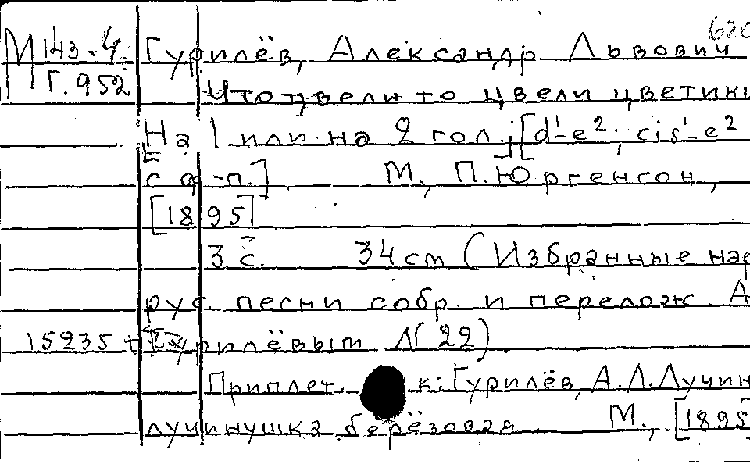 М 143-4 Гурилёв, Александр Львович
Г. 952 Что цвели то цвели цветики
На 1 или на 2 гол.; [d¹-e²; cis¹-e²
с ф-п.] М., П. Юргенсон,
[1895]
3 с. 34 cm (Избранные нар
рус. песни собр. и перелож. А
15235 Гурилёвым N 22)
Приплет. к: Гурилёв, А.Л. Лучин
лучинушка берёзовая М., [1895